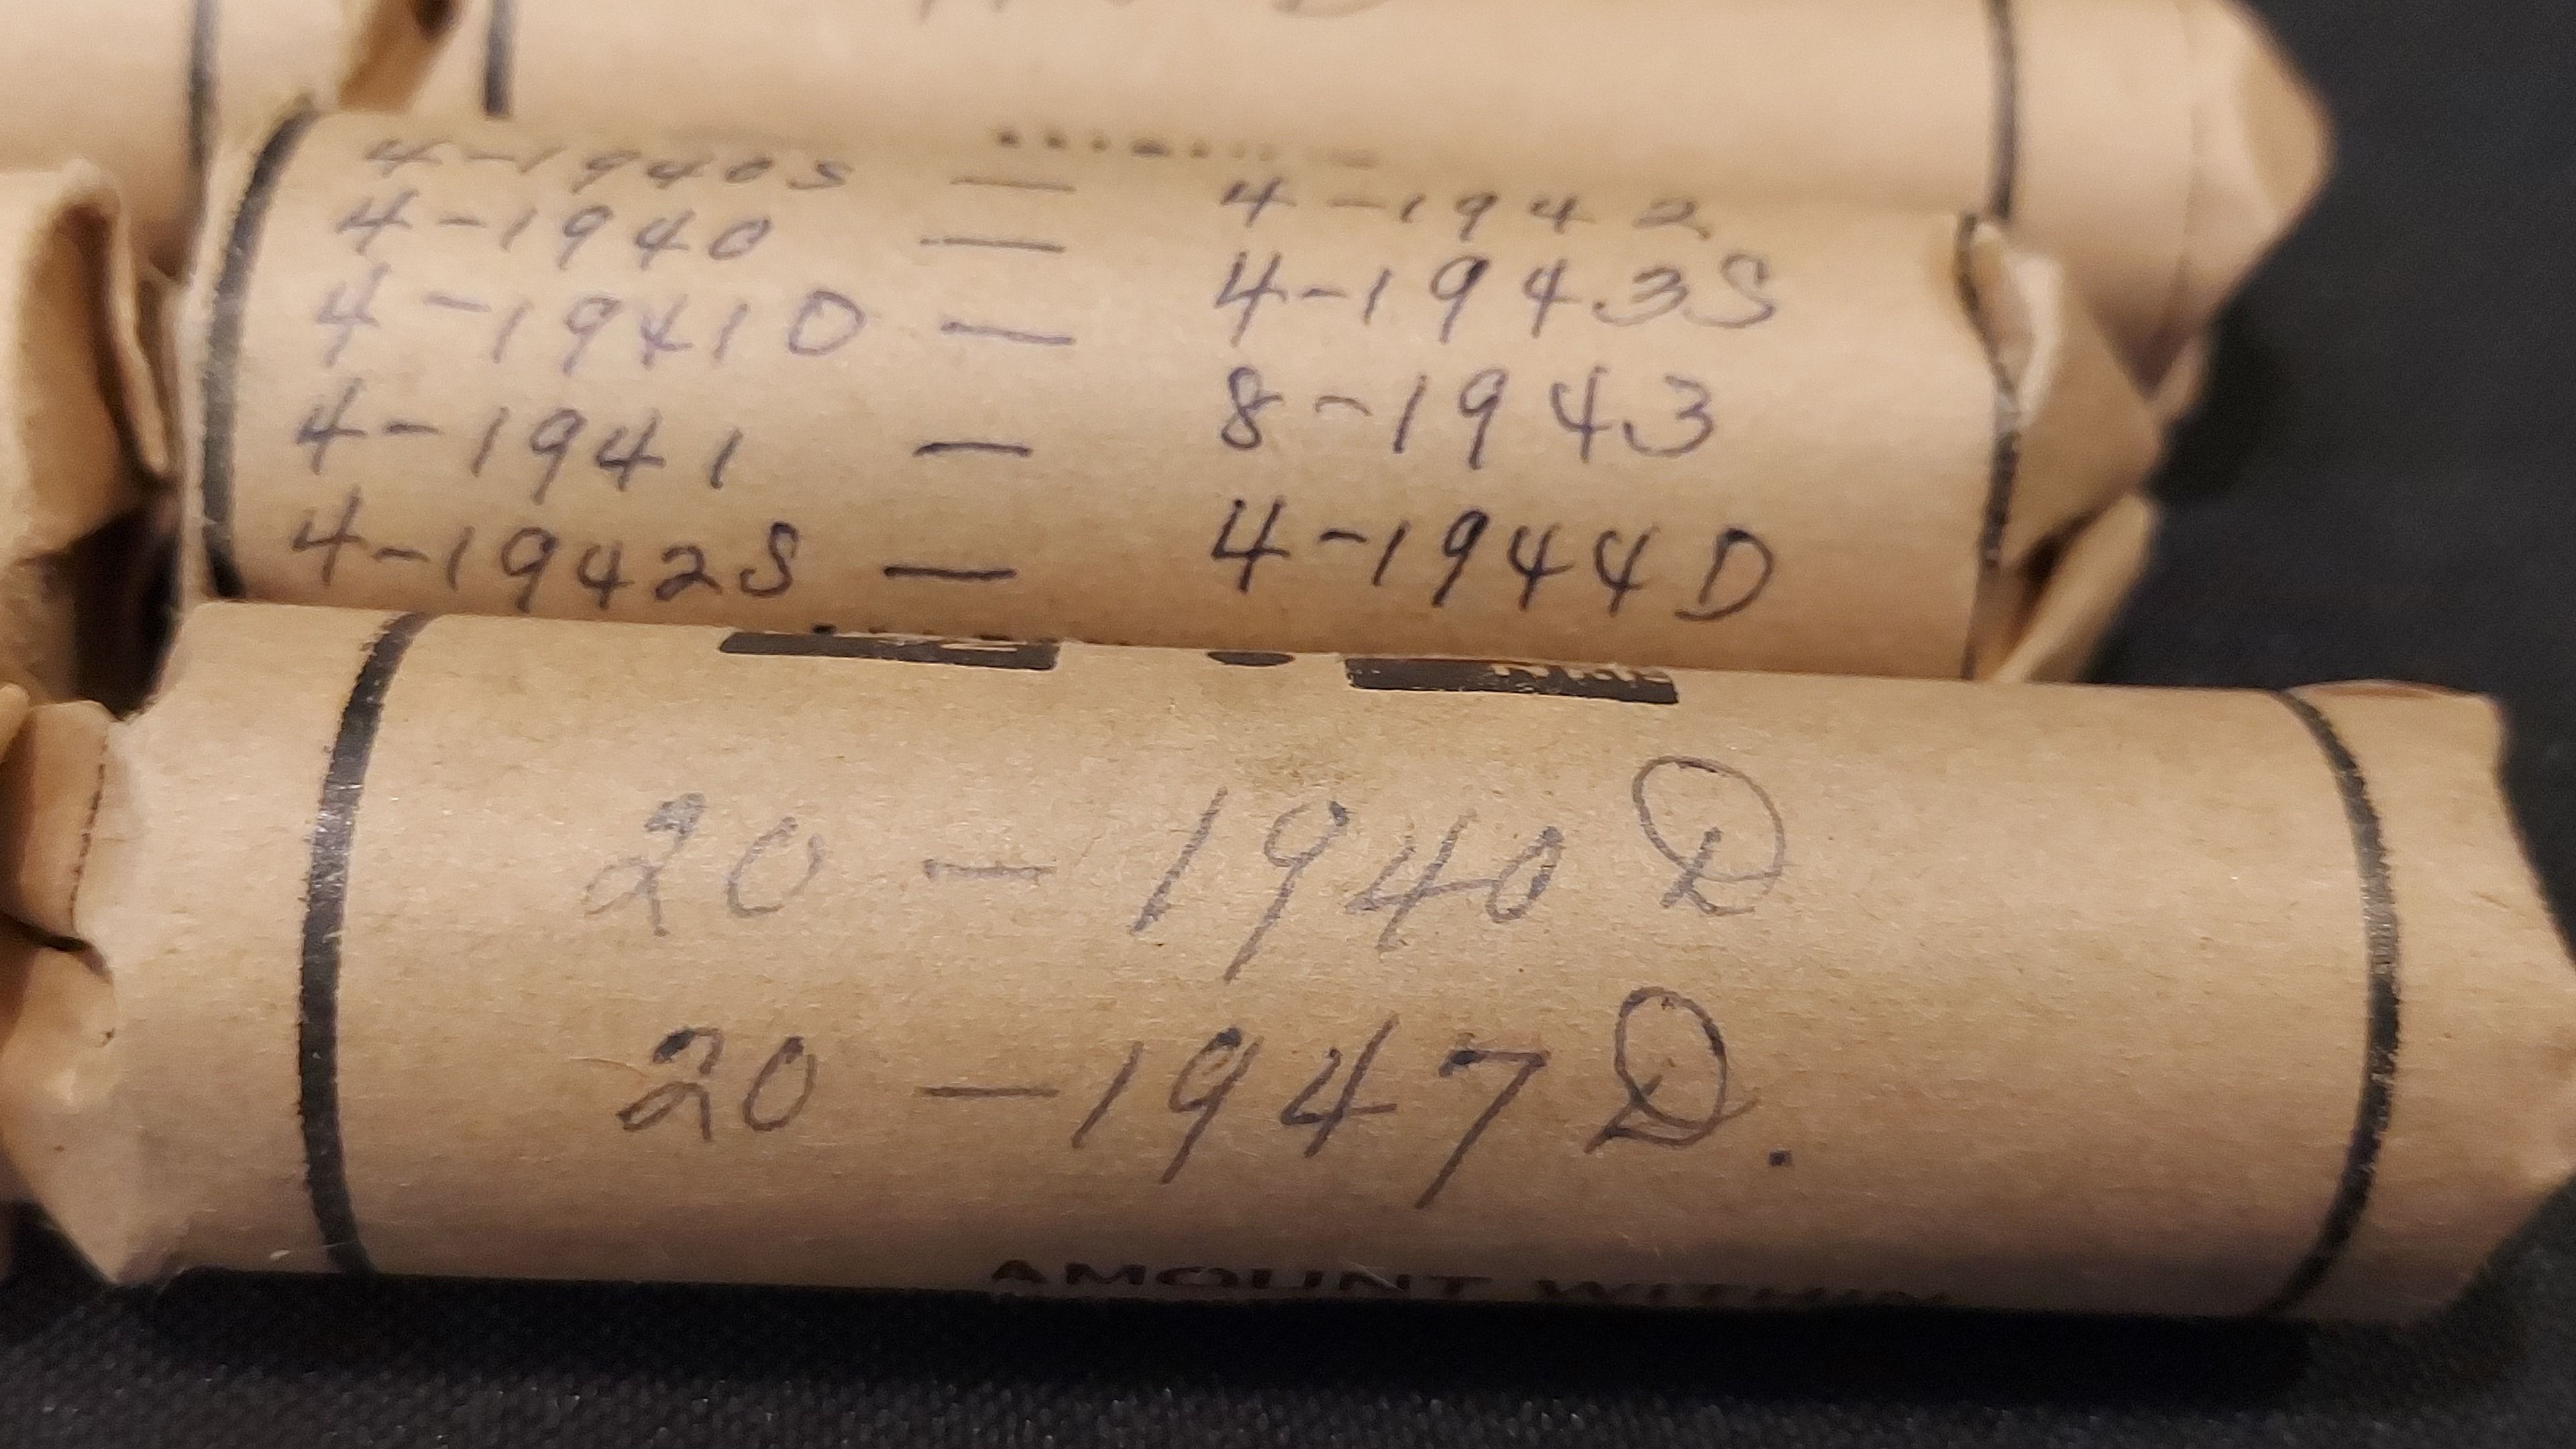 4-1940S — 4-1942
4-1940 — 4-1943S
4-1941D — 8-1943
4-1941 — 4-1944D
4-1942S —
20 - 1940 D
20 - 1947 D.
AMOUNT WITHIN